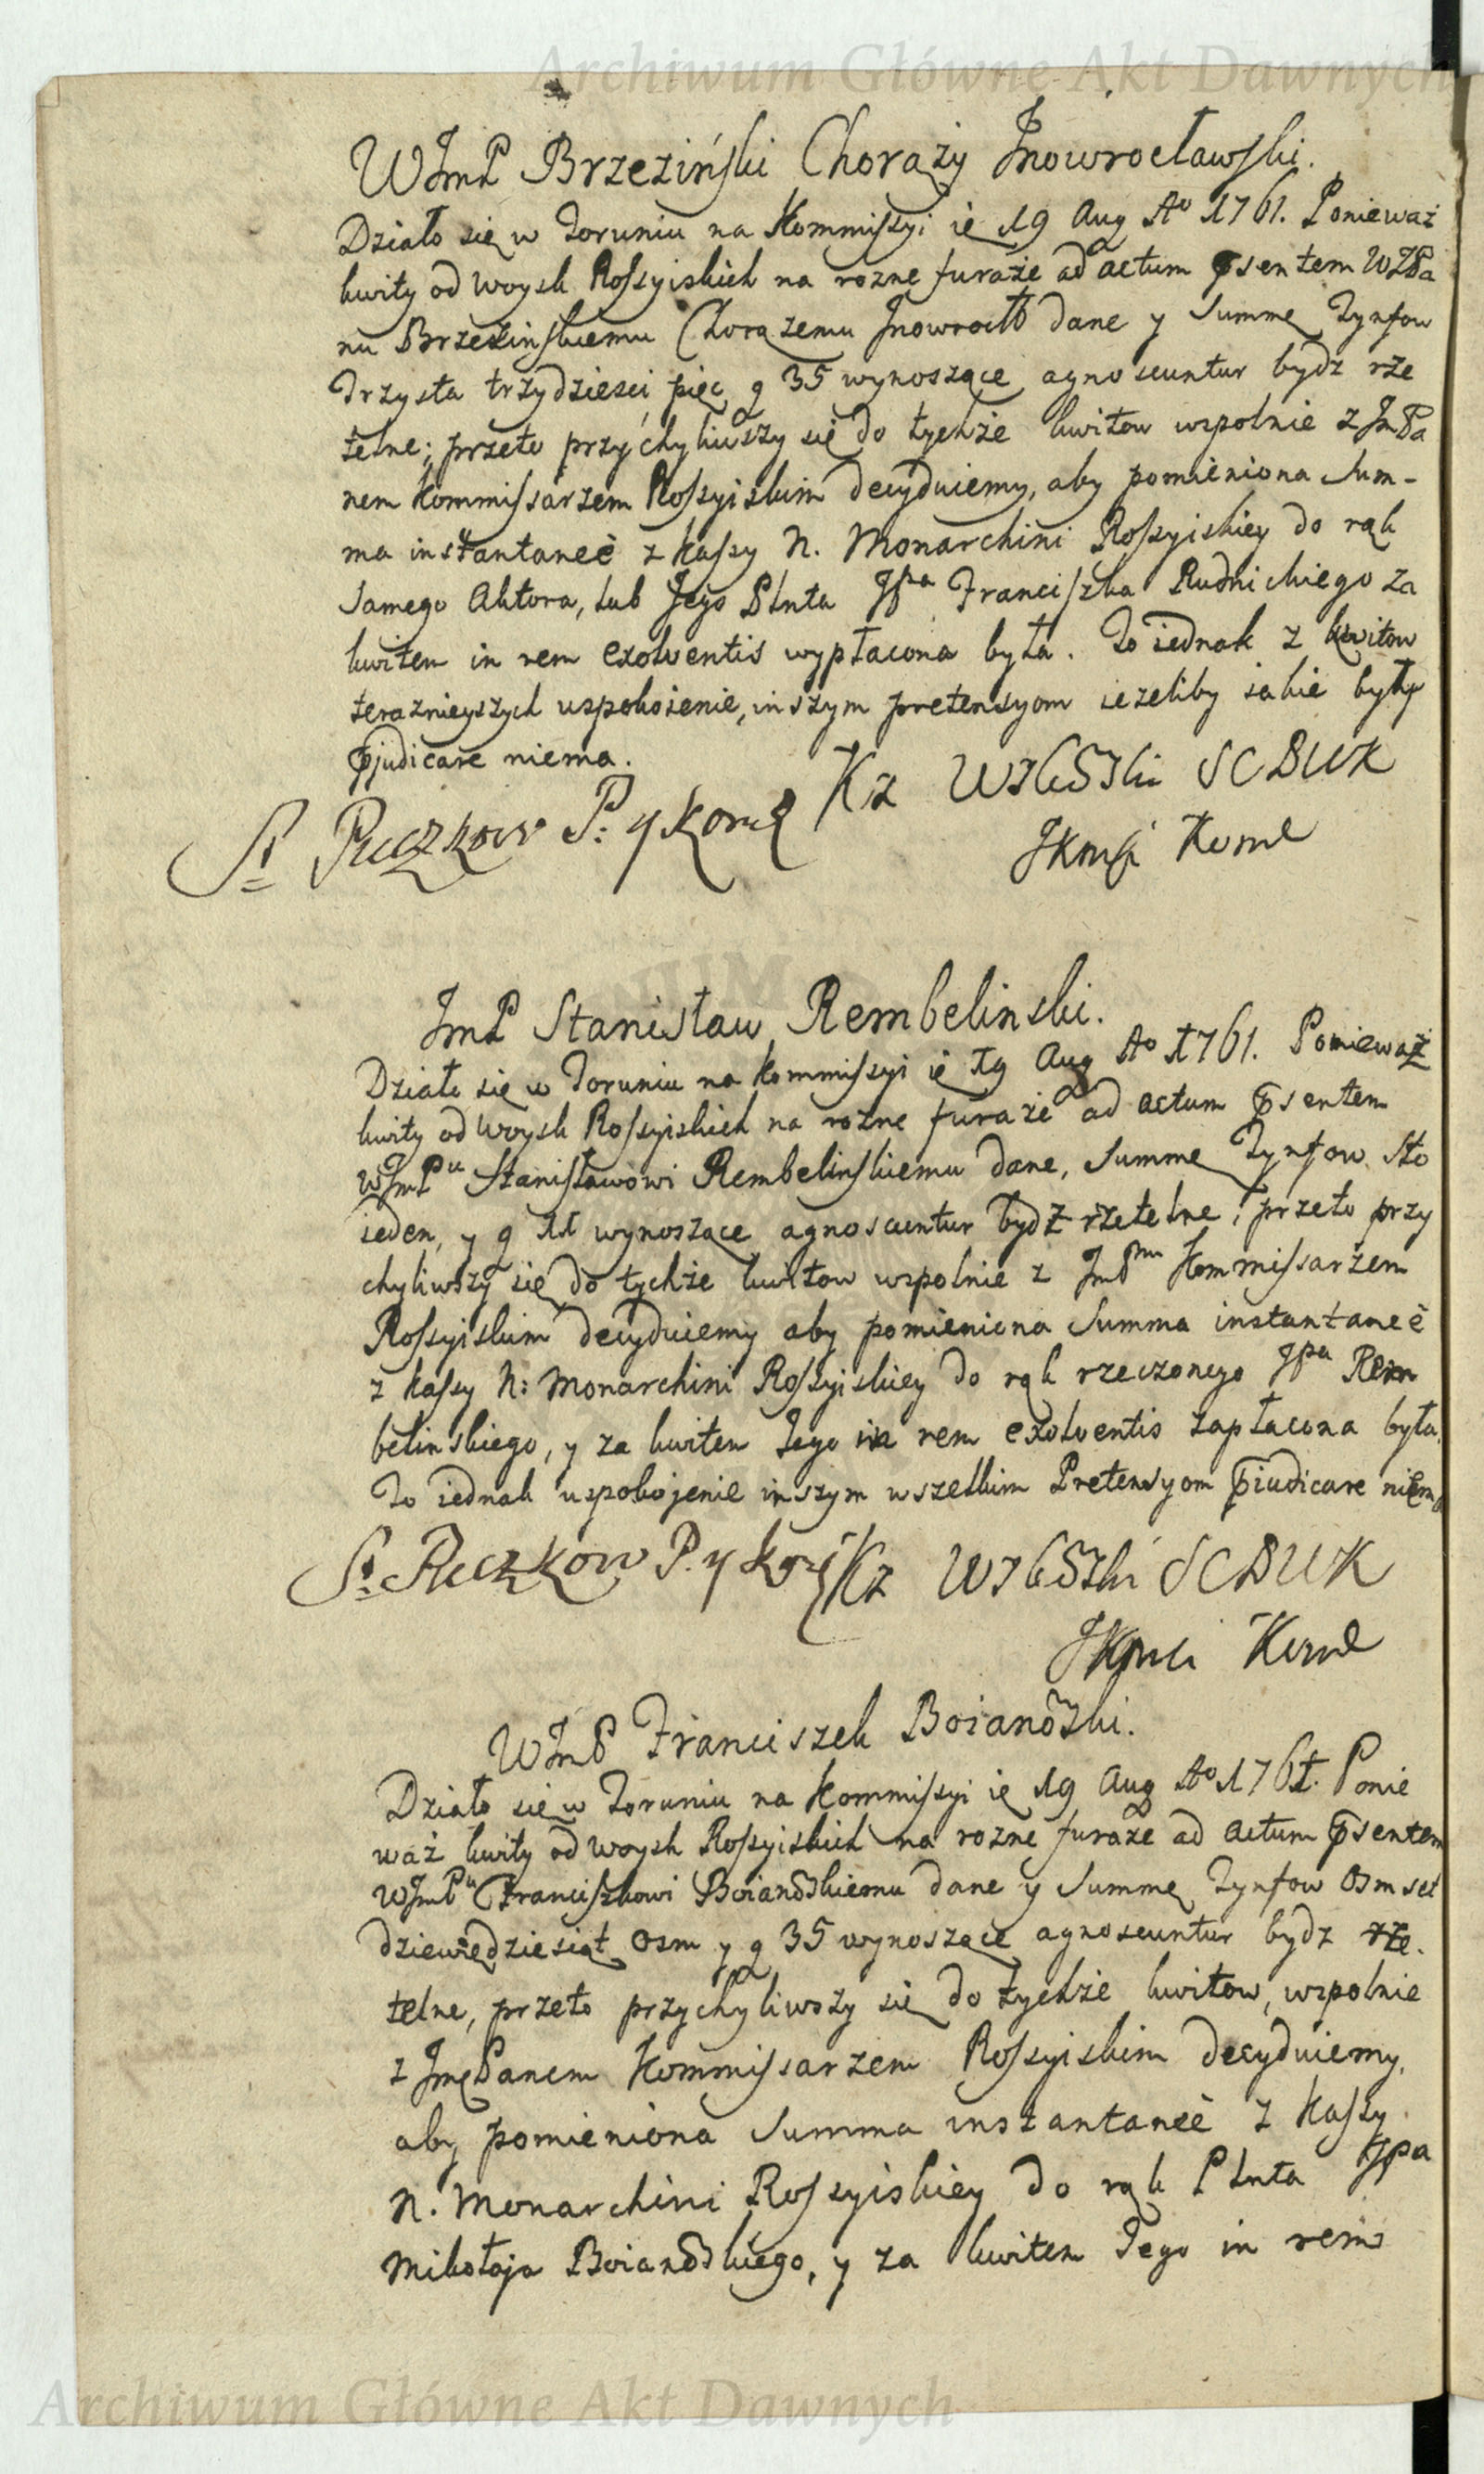 Archiwum Główne Akt Dawnych
WJmP Brzeziński Chorąży Jnowrocławski.
Działo się w Toruniu na Kommissyi ię 19 Aug Aº 1761. Ponieważ
kwity od woysk Rossyiskich na rozne furaże ad actum psentem WJPa
nu Brzezinskiemu Chorążemu Jnowrocłō dane y Summę Tynfow
Trzysta trzydziesci pięc g 35 wynoszące agnoscuntur bydz rze
telne; przeto przychyliwszy się do tychże kwitow wspolnie z JmPa
nem Kommissarzem Rossyiskim decyduiemy, aby pomieniona Sum-
ma instantaneè z kassy N. Monarchini Rossyiskiey do rąk
samego Aktora, lub Jego Plnta JPa Franciszka Rudnickiego za
kwitem in rem exolventis wypłacona była. To iednak z kwitow
teraznieyszych uspokoienie, inszym pretensyom ieżeliby iakie były
pjudicare niema.
St Ruczkow P: y
Kz SCBWK
JmP Stanisław Rembelinski.
Działo się w Toruniu na Kommissyi ię 19 Aug Aº 1761. Ponieważ
kwity od Woysk Rossyiskich na rożne furaże ad actum psentem
WJmPu Stanisławowi Rembelinskiemu dane, Summę Tynfow Sto
ieden, y g 11 wynoszące agnoscuntur bydz rzetelne; przeto przy
chyliwszy się do tychże kwitow wspolnie z JmPnu Kommissarzem
Rossyiskim decyduiemy aby pomieniona Summa instantaneè
z kassy N: Monarchini Rossyiskiey do rąk rzeczonego JPa Rem
belinskiego, y za kwitem Jego in rem exolventis zapłacona była.
To iednak uspokojenie inszym wszelkim Pretensyom piudicare niema
St. Ruczkow P. y
Kz SCBWK
WJmP Franciszek Boianōski.
Działo się w Toruniu na Kommissyi ię 19 Aug Aº 1761. Ponie
waż kwity od woysk Rossyiskich na rozne furaże ad actum psentem
WJmPu Franciszkowi Boianōskiemu dane y Summę Tynfow Osmset
dziewiędziesiąt osm y g 35 wynoszące agnoscuntur bydz rze.
telne, przeto przychyliwszy się do tychże kwitow, wspolnie
z JmęPanem Kommissarzem Rossyiskim decyduiemy,
aby pomieniona Summa instantaneè z Kassy
N. Monarchini Rossyiskiey do rąk Plnta JPa
Mikołaja Boianōskiego, y za kwitem Jego in rem
Archiwum Główne Akt Dawnych